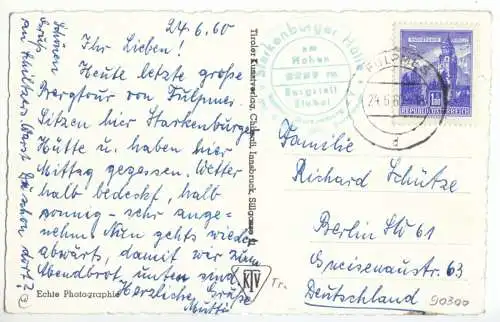 24.6.60
Ihr Lieben!
Heute letzte große
Bergtour von Fulpmes.
Sitzen hier Starkenburger
Hütte u. haben hier
Mittag gegessen. Wetter
halb bedeckt, halb
sonnig - sehr ange-
nehm. Nun gehts wieder
abwärts, damit wir zum
Abendbrot unten sind.
Herzliche Grüße
Mutti
Schönen
Gruß
an
Horst schon dort?
Echte Photographie
Tiroler Kunstverlag, Chizzali, Innsbruck, Sillgasse
KTV
Tr.
Starkenburger Hütte
am
Hohen
Burgstall
Stubai
FULPMES
24.6.60
REPUBLIK ÖSTERREICH
Familie
Richard Schütze
Berlin SW 61
Gneisenaustr. 63
Deutschland
90300